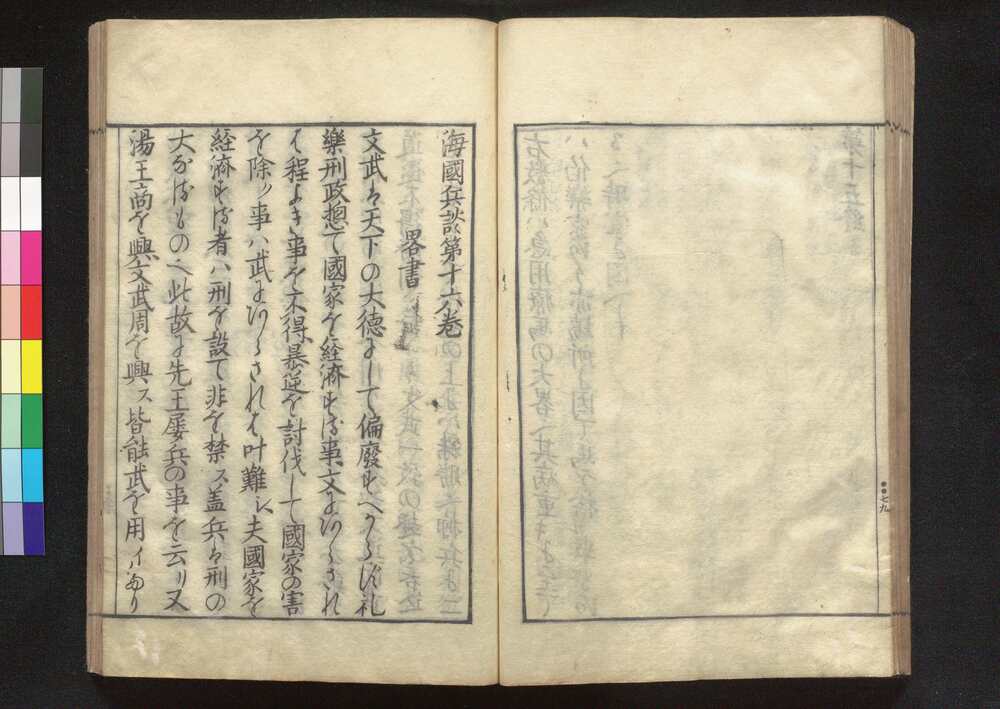 海國兵談第十六卷
畧書
文武ハ天下の大德にして偏廢すへからす礼
樂刑政揔て國家を経済する事文にあらされ
は程よき事を不得暴逆を討伐して國家の害
を除ク事ハ武にあらされは叶難し夫國家を
経済する者ハ刑を設て非を禁ス盖兵ハ刑の
大なるもの也此故に先王屡兵の事を云リ又
湯王商を興文武周を興ス皆能武を用イたり
七九